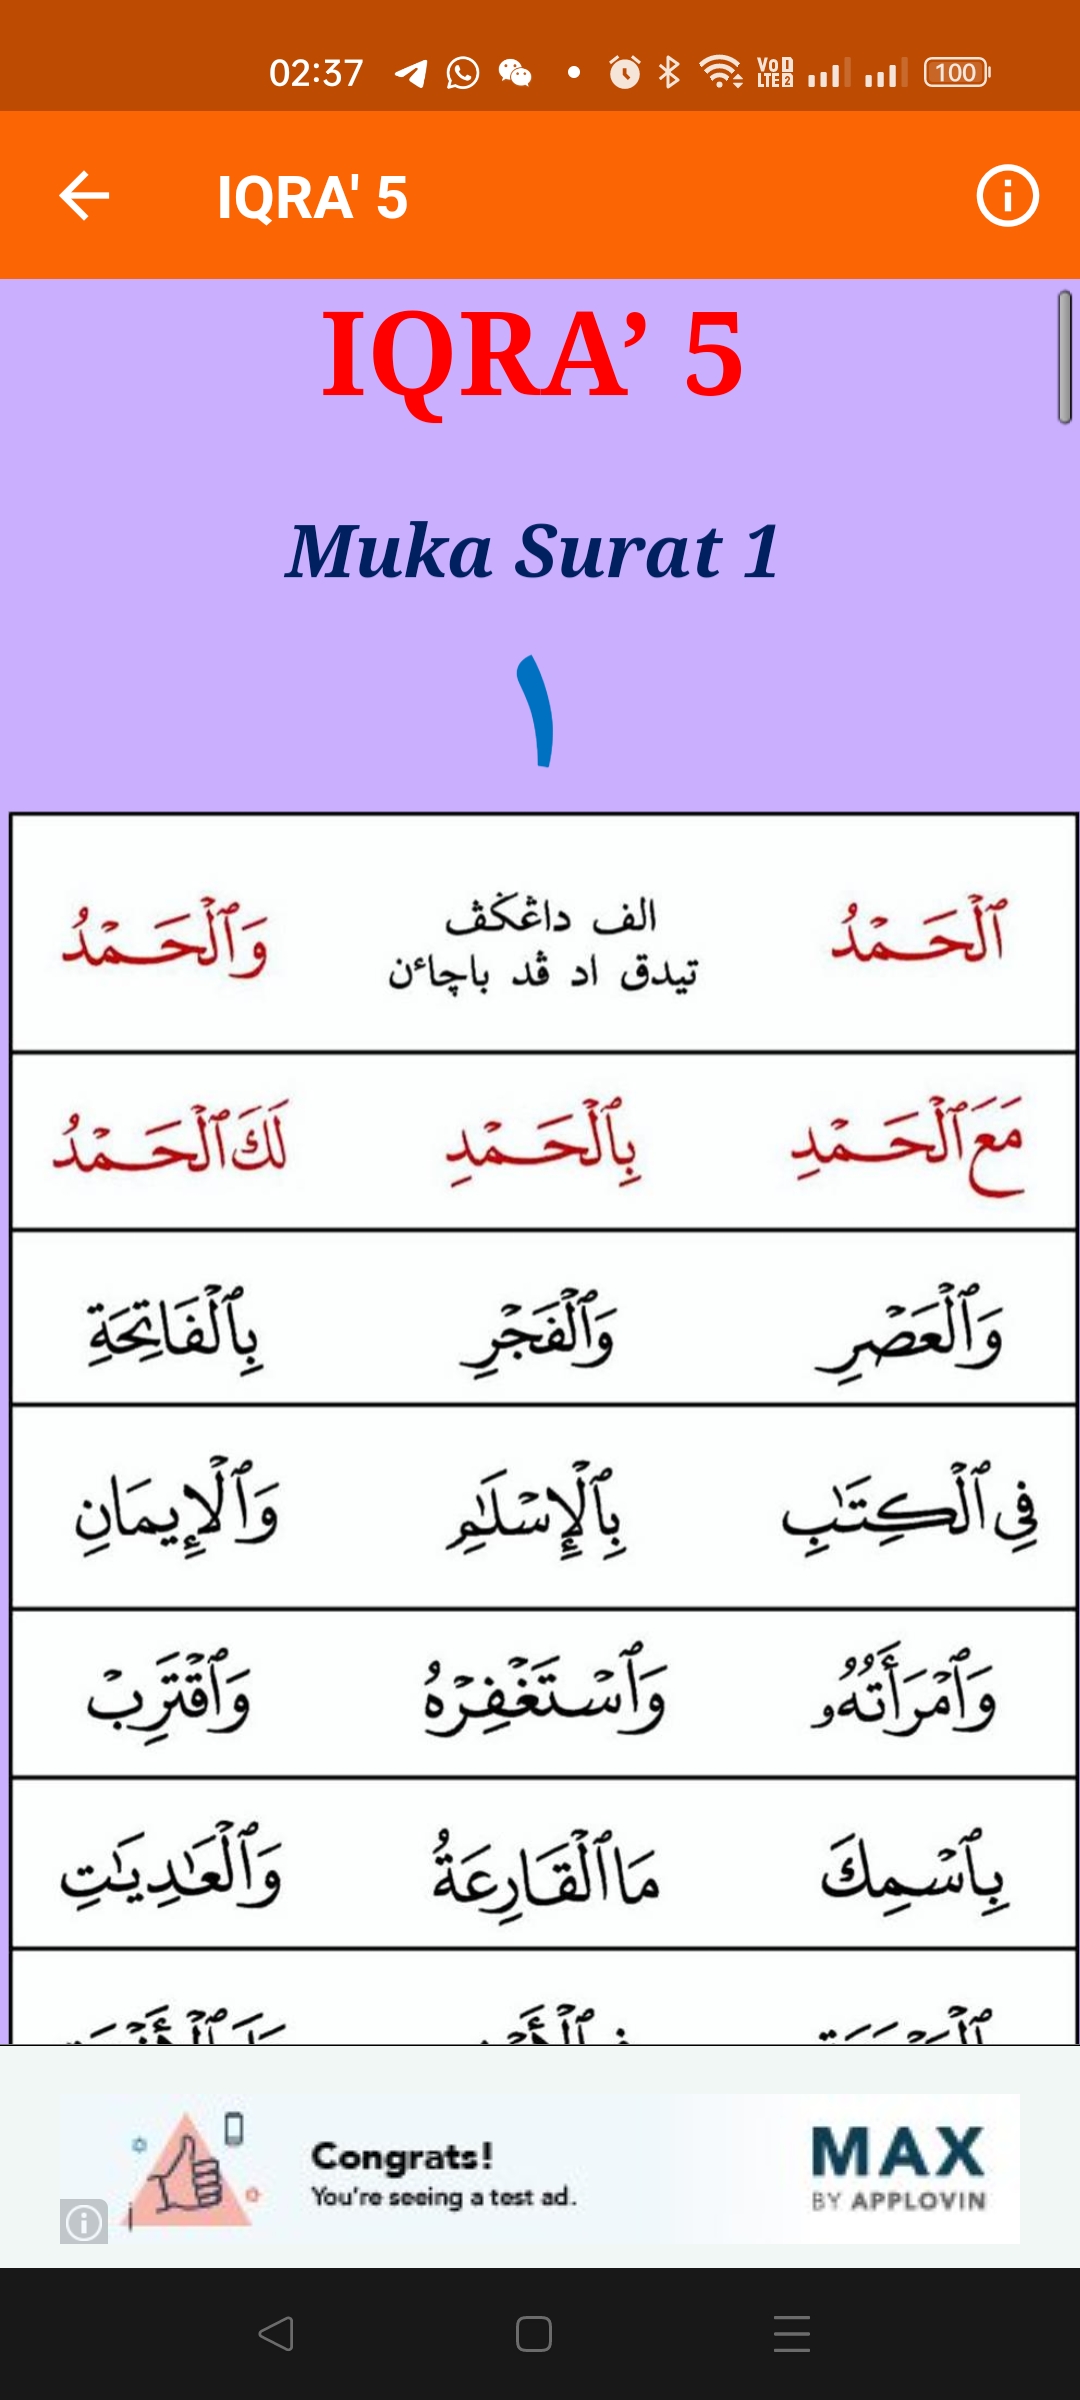 02:37 VoD LTE2 100
IQRA' 5
IQRA’ 5
Muka Surat 1
١
ٱلْحَمْدُ الف داڠكڤ وَٱلْحَمْدُ
تيدق اد ڤد باچاءن
مَعَ ٱلْحَمْدِ بِٱلْحَمْدِ لَكَ ٱلْحَمْدُ
وَٱلْعَصْرِ وَٱلْفَجْرِ بِٱلْفَاتِحَةِ
فِي ٱلْكِتَٰبِ بِٱلْإِسْلَٰمِ وَٱلْإِيمَانِ
وَٱمْرَأَتُهُۥ وَٱسْتَغْفِرْهُ وَٱقْتَرِبْ
بِٱسْمِكَ مَا ٱلْقَارِعَةُ وَٱلْعَٰدِيَٰتِ
Congrats!
You're seeing a test ad.
MAX
BY APPLOVIN